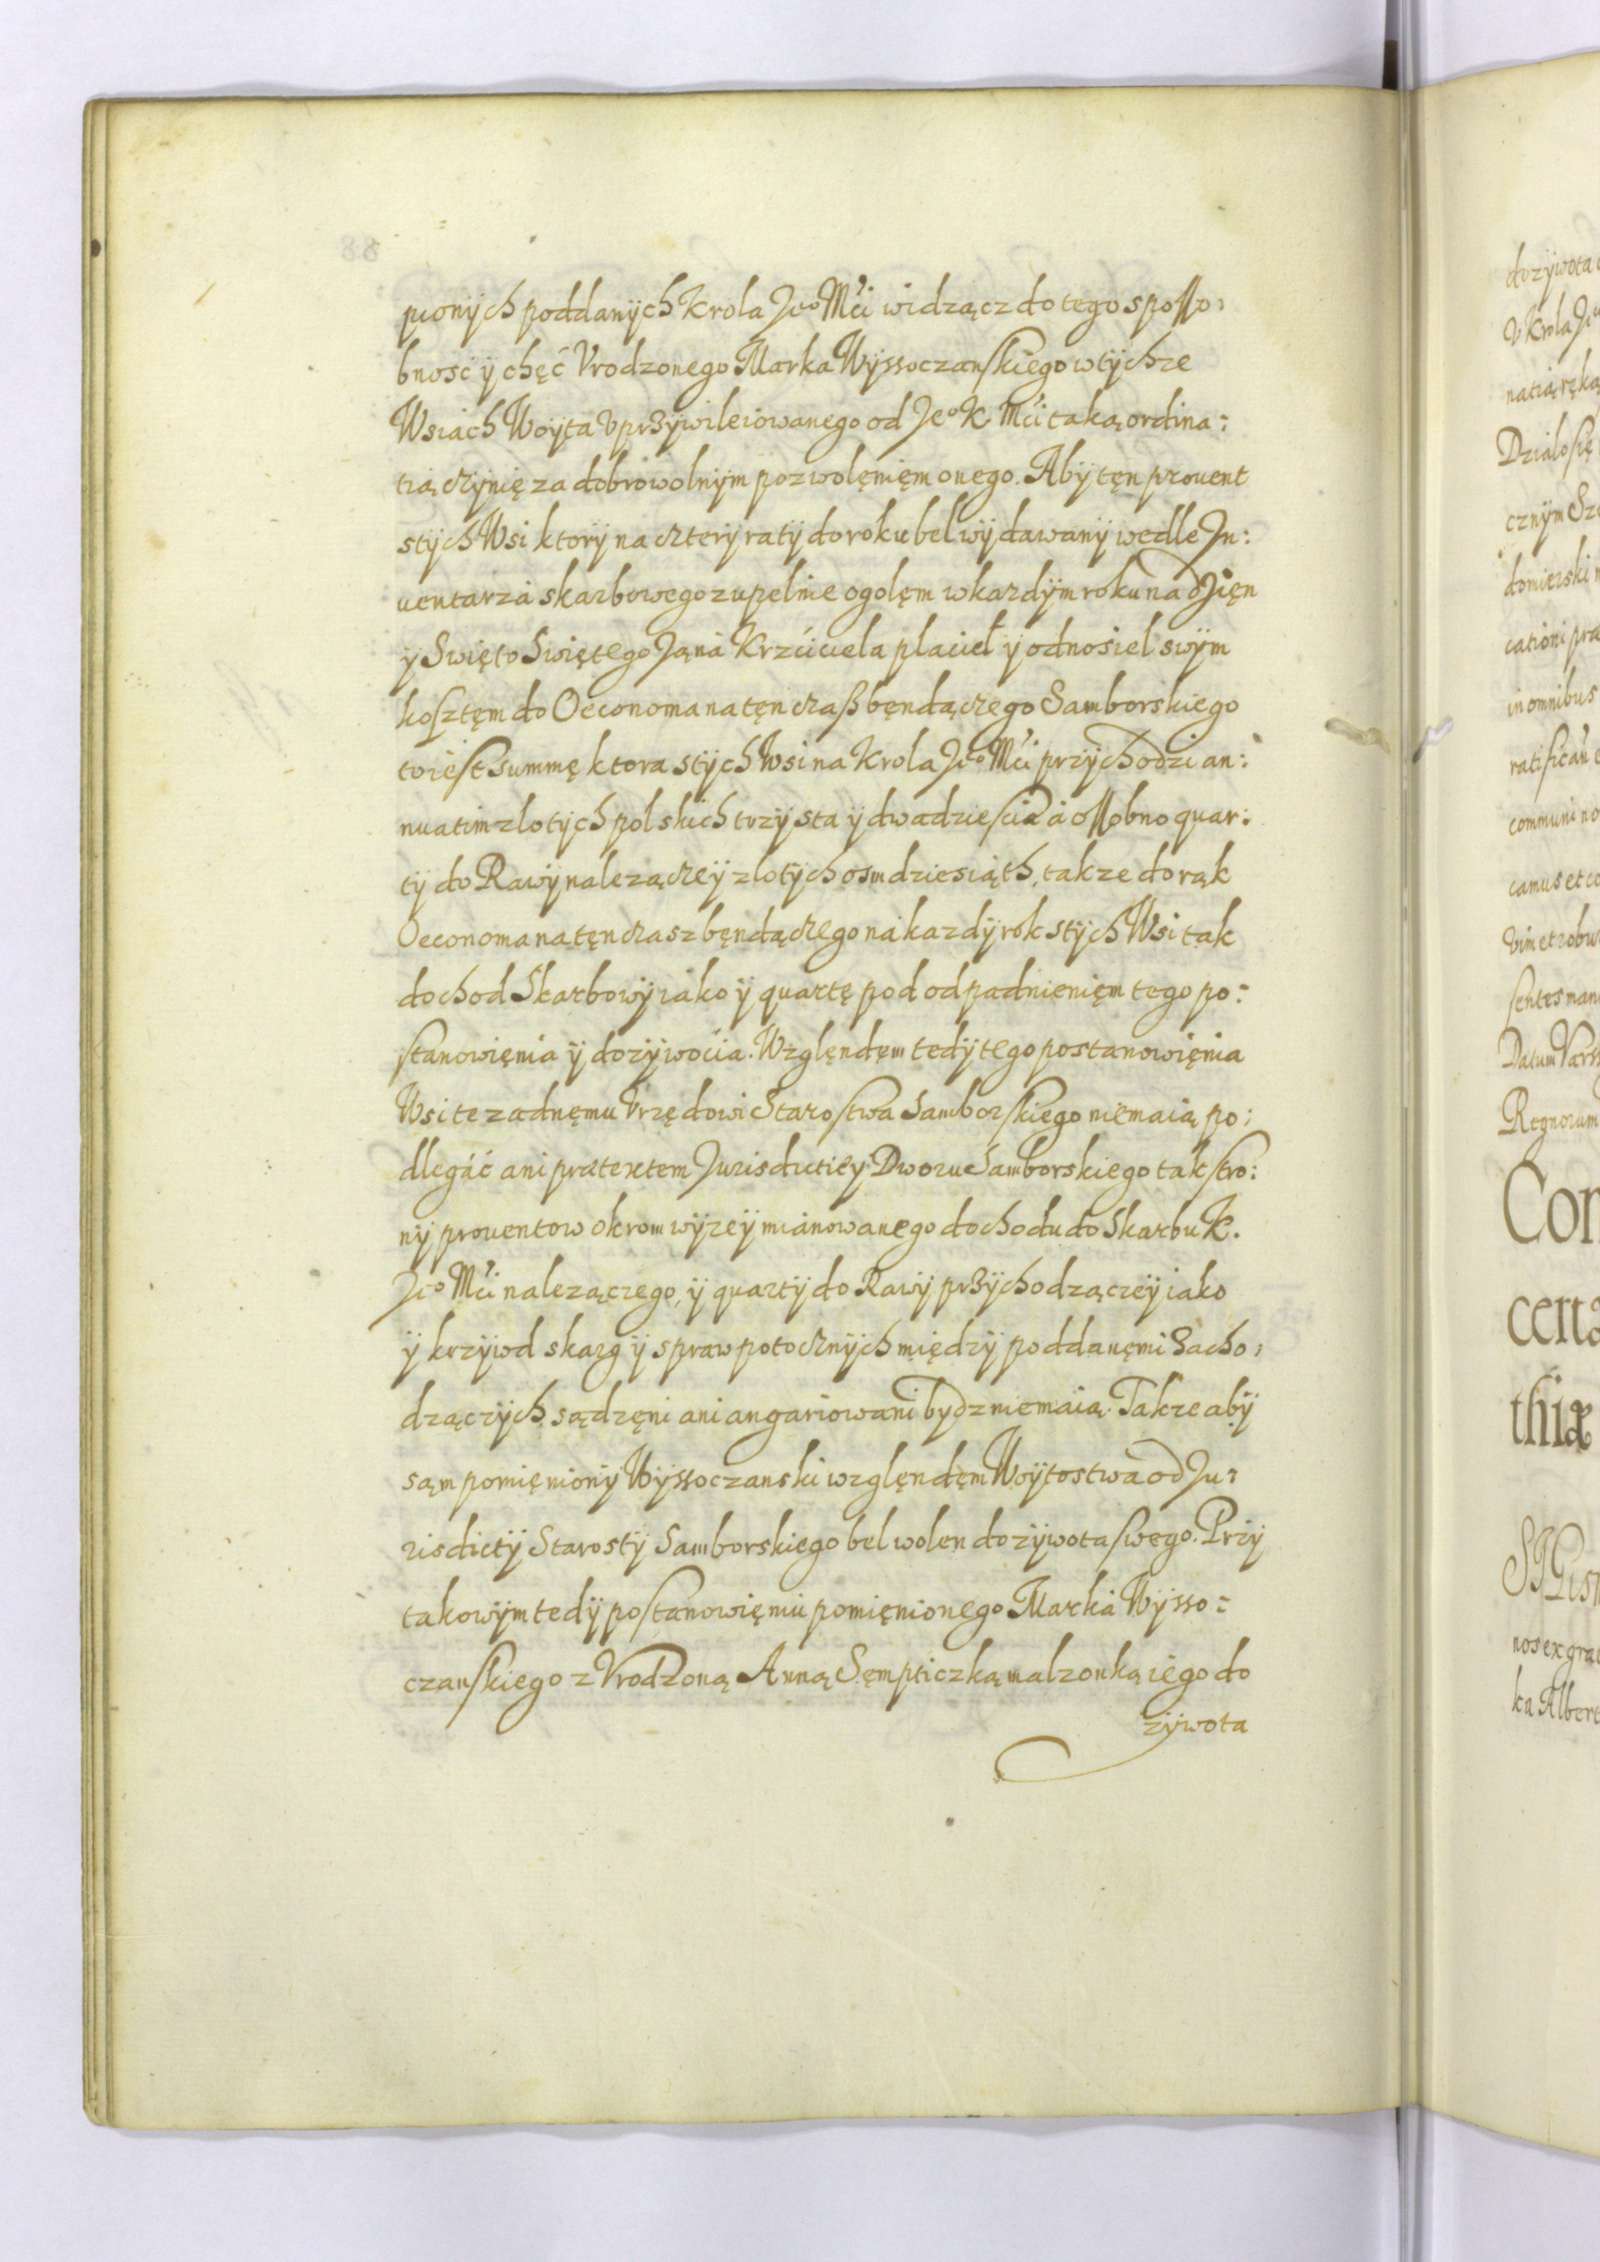 pionÿch poddanÿch Krola Jeo Mći widzącz do tego sposso:
bność ÿ chęć Vrodzonego Marka Wÿssoczanskiego wtÿchze
Wsiach Woÿta vprzÿwileiowanego od Jeo K Mći taką ordina:
tią czÿnię za dobrowolnÿm pozwolęnięm onego. Abÿ tęn prouent
stÿch Wsi ktorÿ na czterÿ ratÿ do roku bel wÿdawanÿ wedle In:
uentarza skarbowego zupelnie ogolęm wkazdÿm roku na dzięn
ÿ Swięto Swiętego Jana Krzciciela placieł ÿ odnosiel swÿm
kosztęm do Oeconoma na tęn czaß będączego Samborskiego
toiest summę ktora stÿch Wsi na Krola Jeo Mći przÿchodzi an:
nuatim zlotÿch polskich trzÿsta ÿ dwadziescia a ossobno quar:
tÿ do Rawÿ nalezączeÿ zlotÿch osmdziesiąth, takze do rąk
Oeconoma na tęn czasz bęndączego na kazdÿ rok stÿch Wsi tak
dochod Skarbowÿ iako ÿ quartę pod odpadnienięm tego po:
stanowięnia ÿ dozÿwocia. Wzglęndęm tedÿ tego postanowięnia
Wsi te zadnęmu Vrzędowi Starostwa Samborskiego niemaią po:
dlegáć ani prætextem Jurisdictieÿ Dworu Samborskiego tak stro:
nÿ prouentow okrom wÿzeÿ mianowanego dochodu do Skarbu K.
Jeo Mći nalezączego, ÿ quartÿ do Rawÿ przÿchodzączeÿ iako
ÿ krzÿwd skarg ÿ spraw potocznÿch międzÿ poddanęmi zacho:
dzączÿch, sądzęni ani angariowani bÿdz niemaią. Takze abÿ
sąm pomięnionÿ Wÿssoczanski wzglęndęm Woÿtostwa od Ju:
risdictÿ Starostÿ Samborskiego bel wolen do zÿwota swego. Przÿ
takowÿm tedÿ postanowięniu pomięnionego Marka Wÿsso:
czanskiego z Vrodzoną Anną Sęmpticzką malzonką iego do
zÿwota
dozÿwota
V Krola Jeo
Dzialo się
cationi
in omnibus
communi
camus et
Datum
Regnorum
Con
certa
thiæ
nos ex
ka Albert